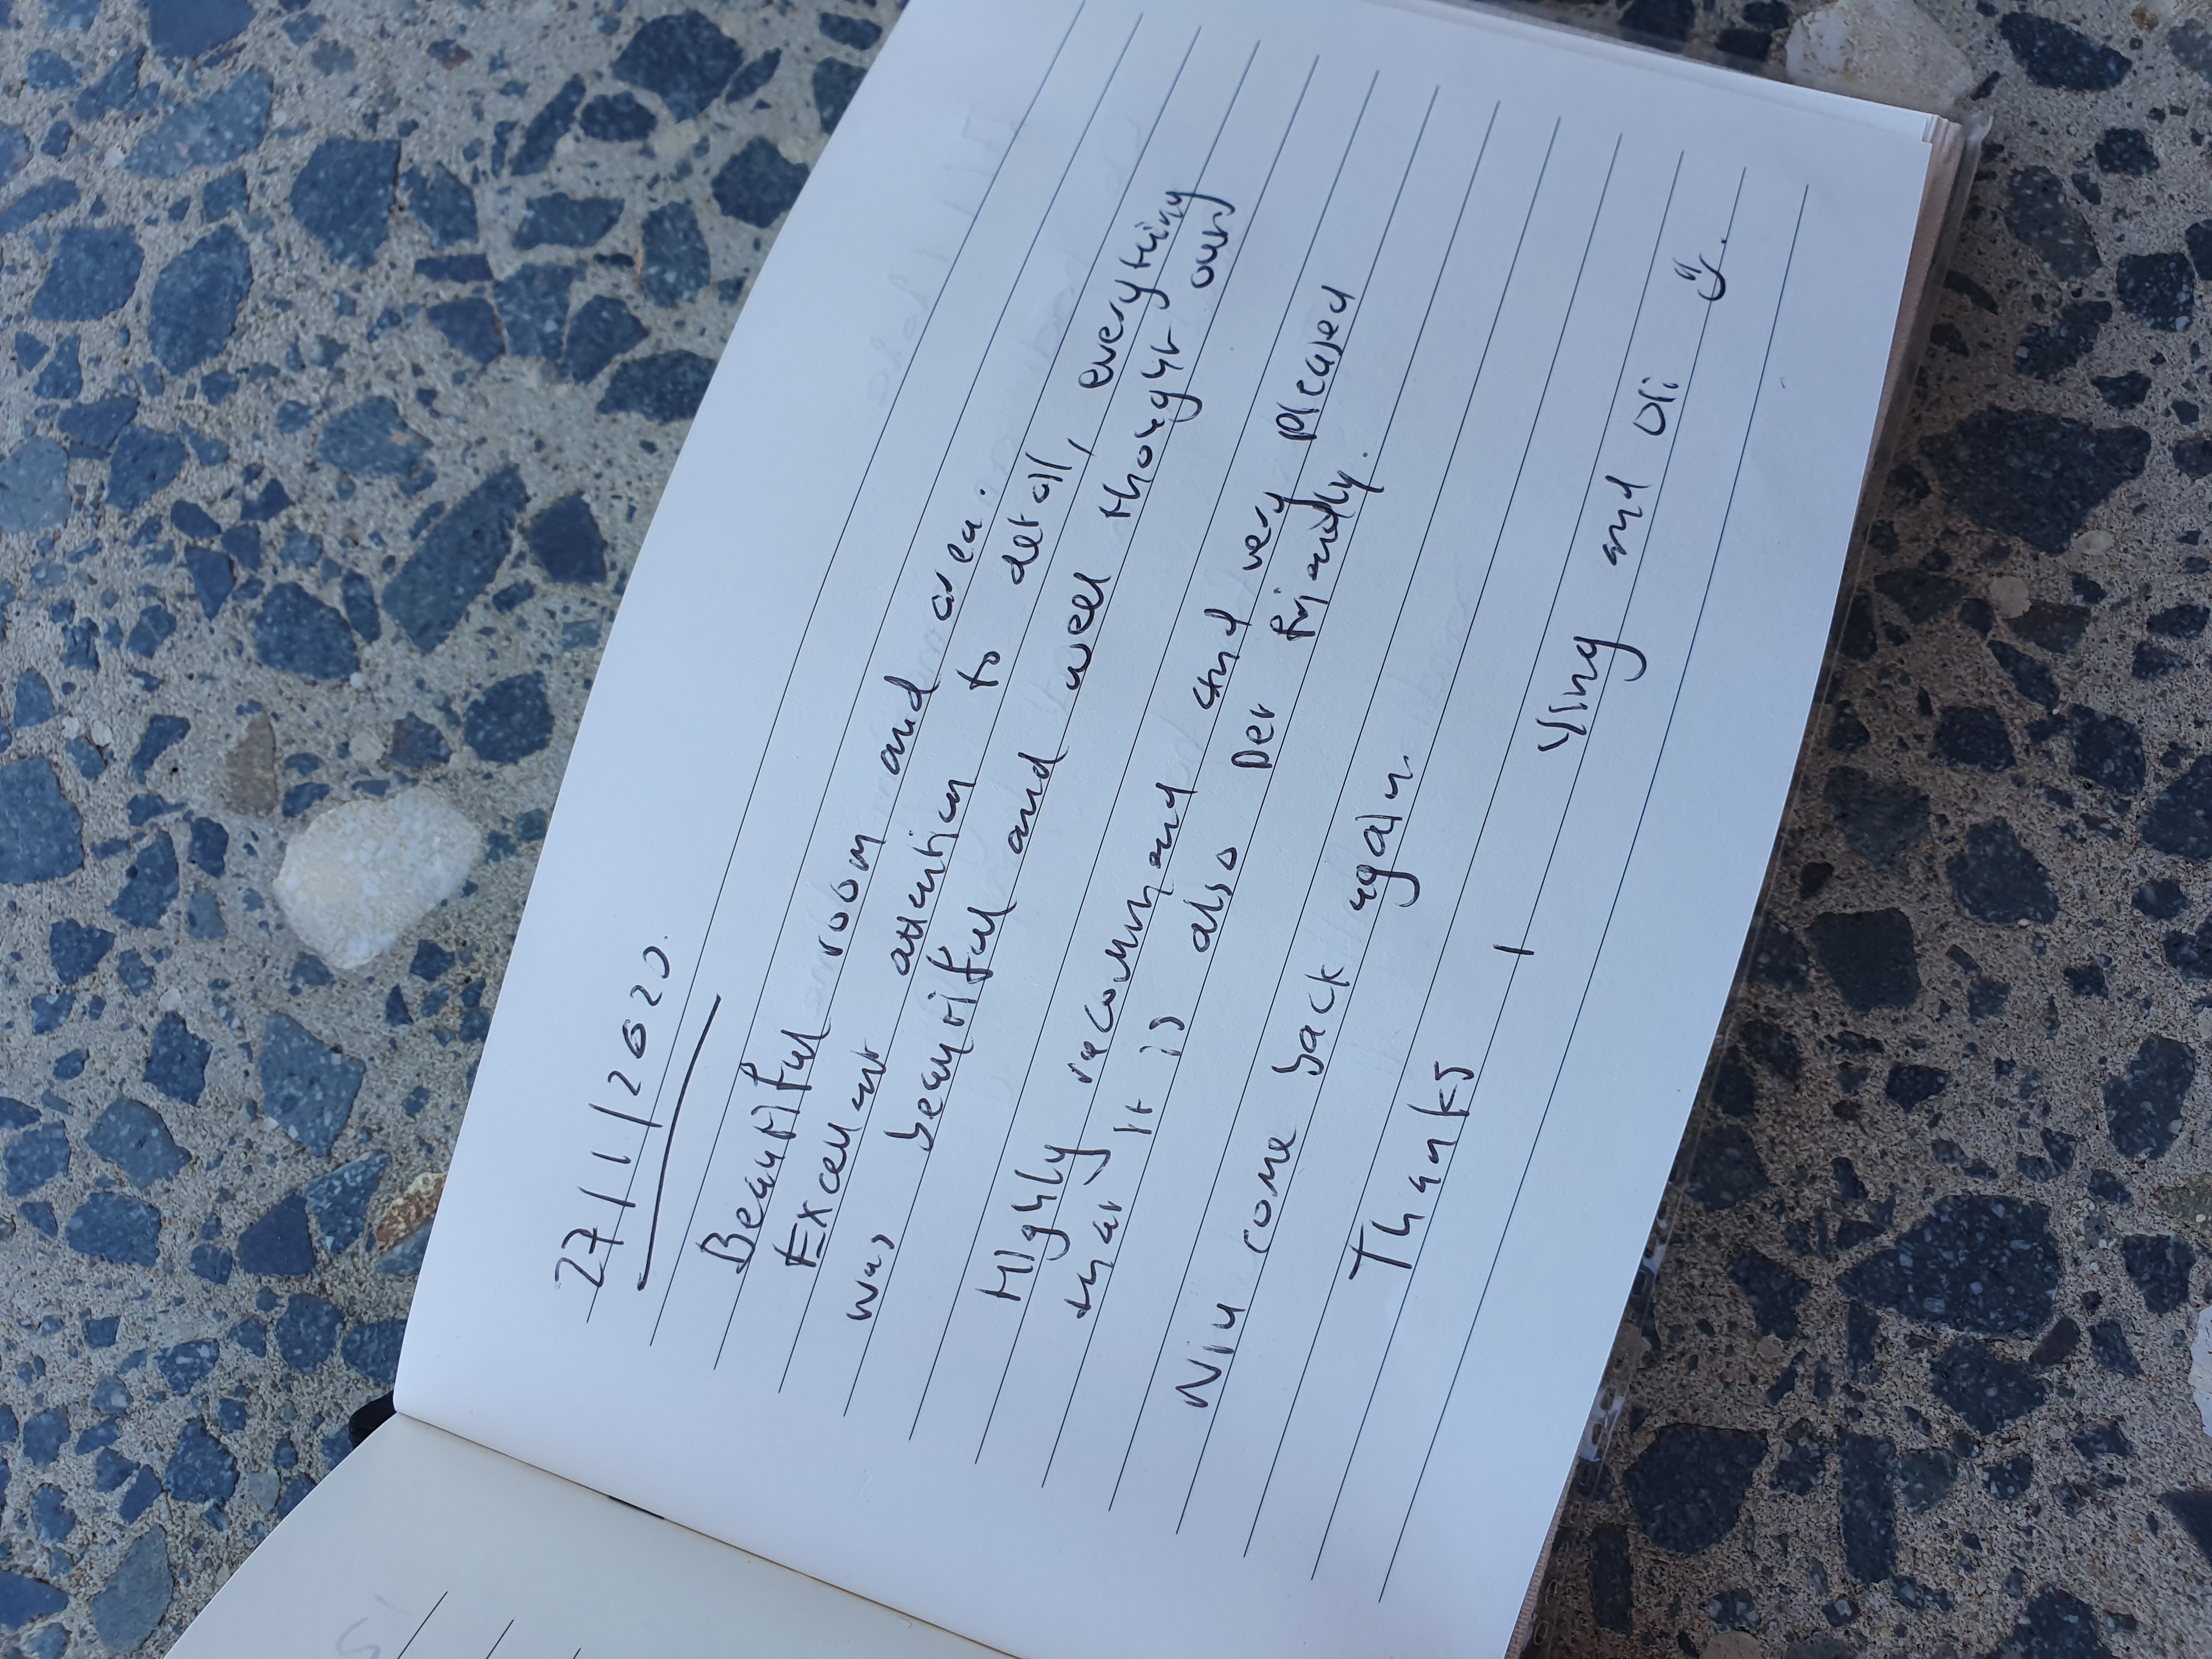 27/11/2020.
Beautiful room and area.
Excellent attention to detail, everything
was beautiful and well thought out
Highly recommend and very pleased
that it is also pet friendly.
Will come back again.
Thanks,
Ying and Oli